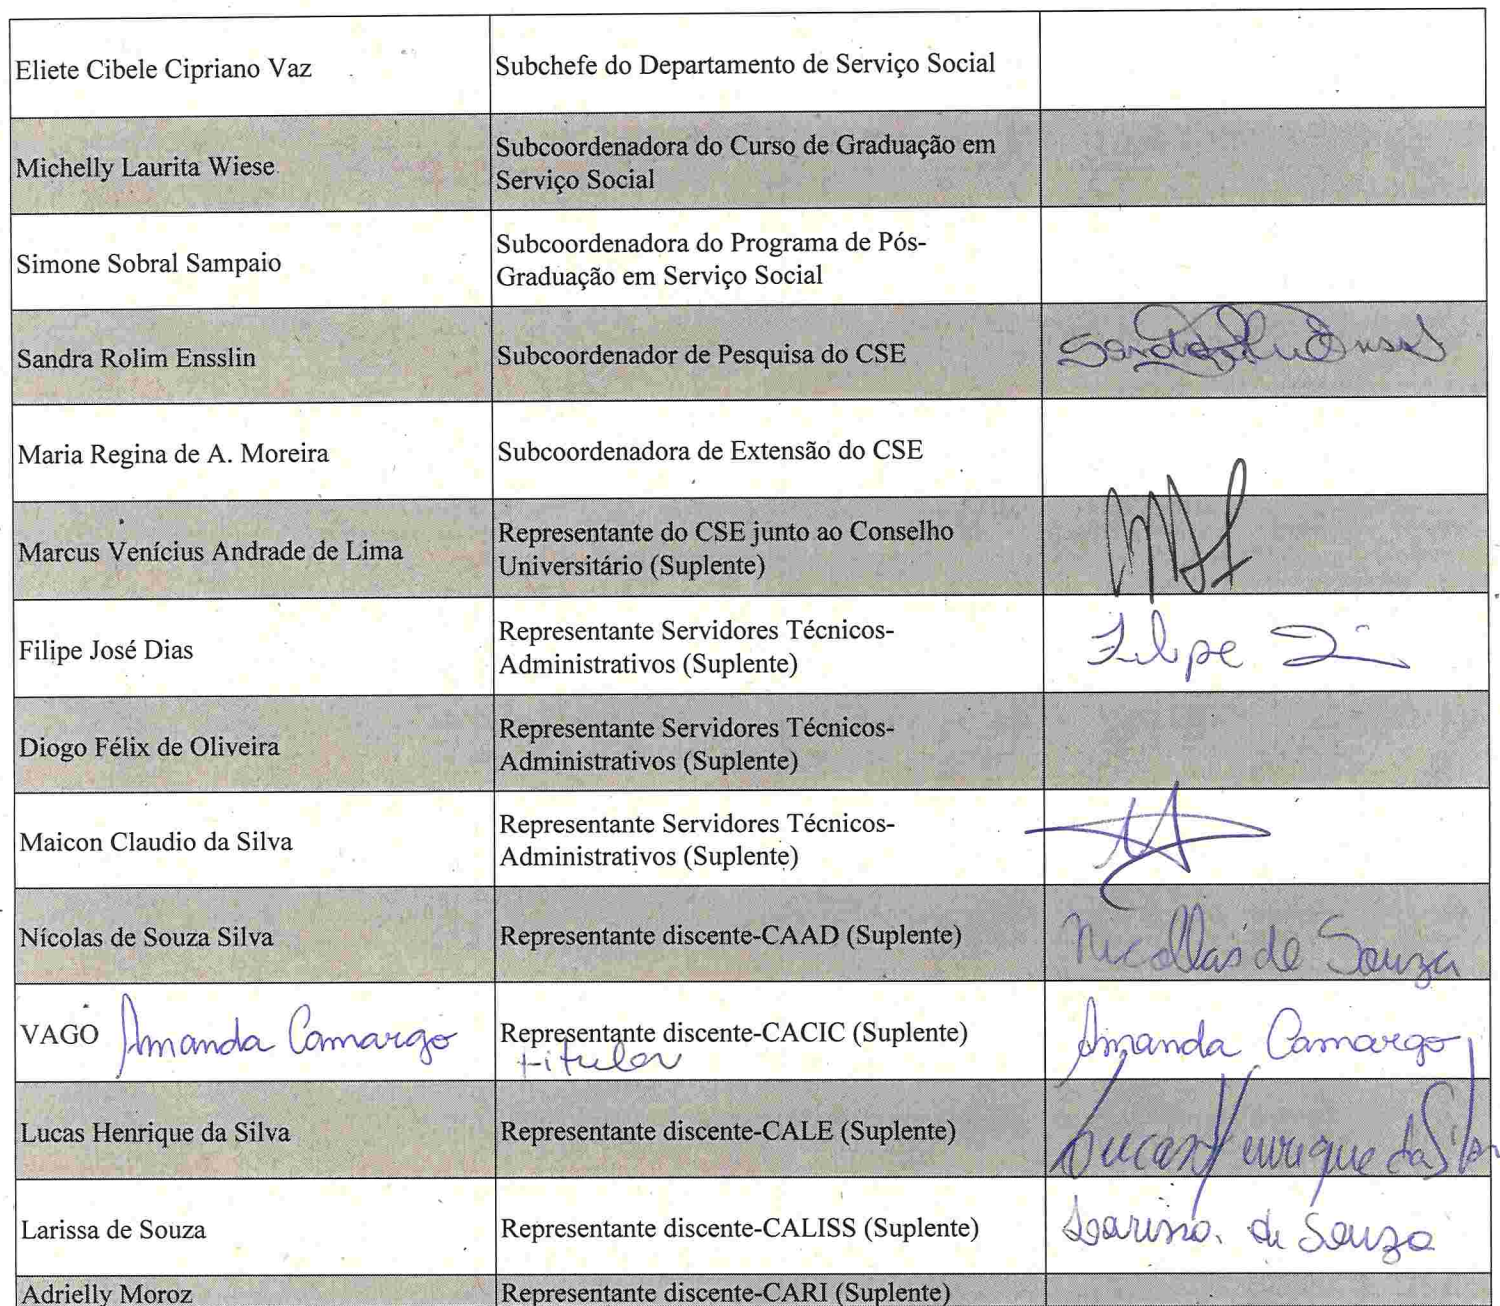 Eliete Cibele Cipriano Vaz
Subchefe do Departamento de Serviço Social
Michelly Laurita Wiese
Subcoordenadora do Curso de Graduação em
Serviço Social
Simone Sobral Sampaio
Subcoordenadora do Programa de Pós-
Graduação em Serviço Social
Sandra Rolim Ensslin
Subcoordenador de Pesquisa do CSE
Maria Regina de A. Moreira
Subcoordenadora de Extensão do CSE
Marcus Venícius Andrade de Lima
Representante do CSE junto ao Conselho
Universitário (Suplente)
Filipe José Dias
Representante Servidores Técnicos-
Administrativos (Suplente)
Filipe
Diogo Félix de Oliveira
Representante Servidores Técnicos-
Administrativos (Suplente)
Maicon Claudio da Silva
Representante Servidores Técnicos-
Administrativos (Suplente)
Nícolas de Souza Silva
Representante discente-CAAD (Suplente)
Nicollas de Souza
VAGO Amanda Camargo
Representante discente-CACIC (Suplente)
titular
Amanda Camargo
Lucas Henrique da Silva
Representante discente-CALE (Suplente)
Lucas Henrique da Silva
Larissa de Souza
Representante discente-CALISS (Suplente)
Larissa de Souza
Adrielly Moroz
Representante discente-CARI (Suplente)